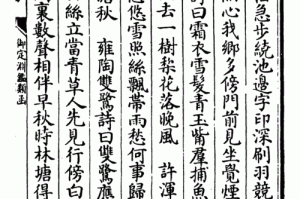 徐急步繞池邊字印深刷羽競
歸心我鄉多傍門前見坐覺煙
詩曰霜衣雪髮青玉觜羣捕魚
去一樹梨花落晚風　許渾
悠雪照絲飄帶雨愁何事歸
塘秋　雍陶雙鷺詩曰雙鷺應
絲立當青草人先見行傍白
裏數聲相伴早秋時林塘得
御定淵鑑類函